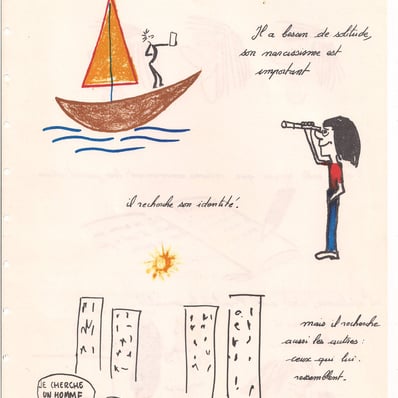 Il a besoin de solitude,
son narcissisme est
important
il recherche son identité.
mais il recherche
aussi les autres :
ceux qui lui
ressemblent.
JE CHERCHE
UN HOMME